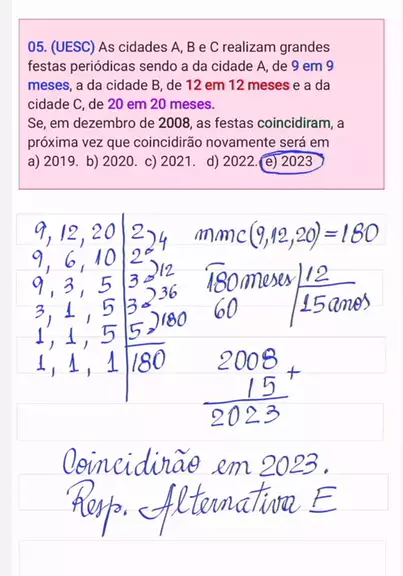 05. (UESC) As cidades A, B e C realizam grandes
festas periódicas sendo a da cidade A, de 9 em 9
meses, a da cidade B, de 12 em 12 meses e a da
cidade C, de 20 em 20 meses.
Se, em dezembro de 2008, as festas coincidiram, a
próxima vez que coincidirão novamente será em
a) 2019. b) 2020. c) 2021. d) 2022. e) 2023
9, 12, 20 | 2
4
9, 6, 10 | 2
9, 3, 5 | 3
12
3, 1, 5 | 3
36
1, 1, 5 | 5
180
1, 1, 1 | 180
mmc(9,12,20) = 180
180 meses | 12
60 15 anos
2008
15 +
2023
Coincidirão em 2023.
Resp. Alternativa E